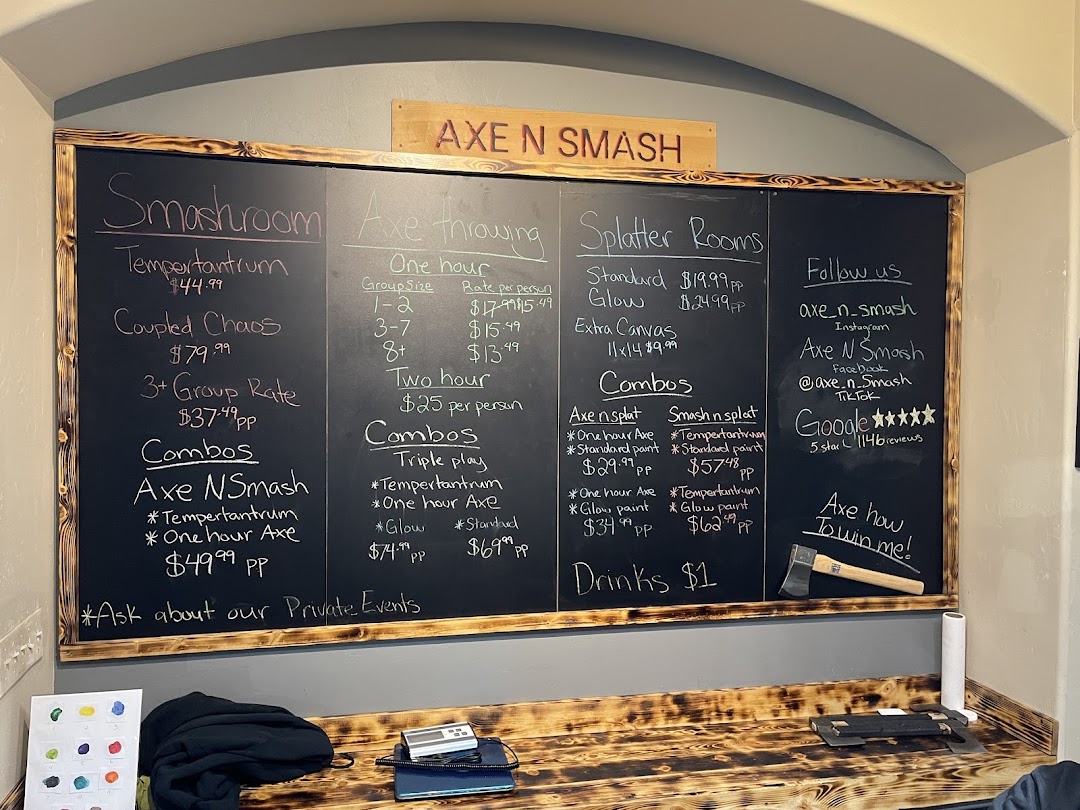 AXE N SMASH
Smashroom
Tempertantrum
$44.99
Coupled Chaos
$79.99
3+ Group Rate
$37.49 pp
Combos
Axe N Smash
*Tempertantrum
*One hour Axe
$49.99 pp
*Ask about our Private Events
Axe throwing
One hour
Group Size Rate per person
1-2 $17.99 $15.49
3-7 $15.49
8+ $13.49
Two hour
$25 per person
Combos
Triple play
*Tempertantrum
*One hour Axe
*Glow *Standard
$74.99 pp $69.99 pp
Splatter Rooms
Standard $19.99 pp
Glow $24.99 pp
Extra Canvas
11x14 $9.99
Combos
Axe n splat Smash n splat
*One hour Axe *Tempertantrum
*Standard paint *Standard paint
$29.99 pp $57.48 pp
*One hour Axe *Tempertantrum
*Glow paint *Glow paint
$34.99 pp $62.49 pp
Drinks $1
Follow us
axe_n_smash
Instagram
Axe N Smash
Facebook
@axe_n_Smash
TikTok
Google
5 star 1146 reviews
Axe how
To win me!